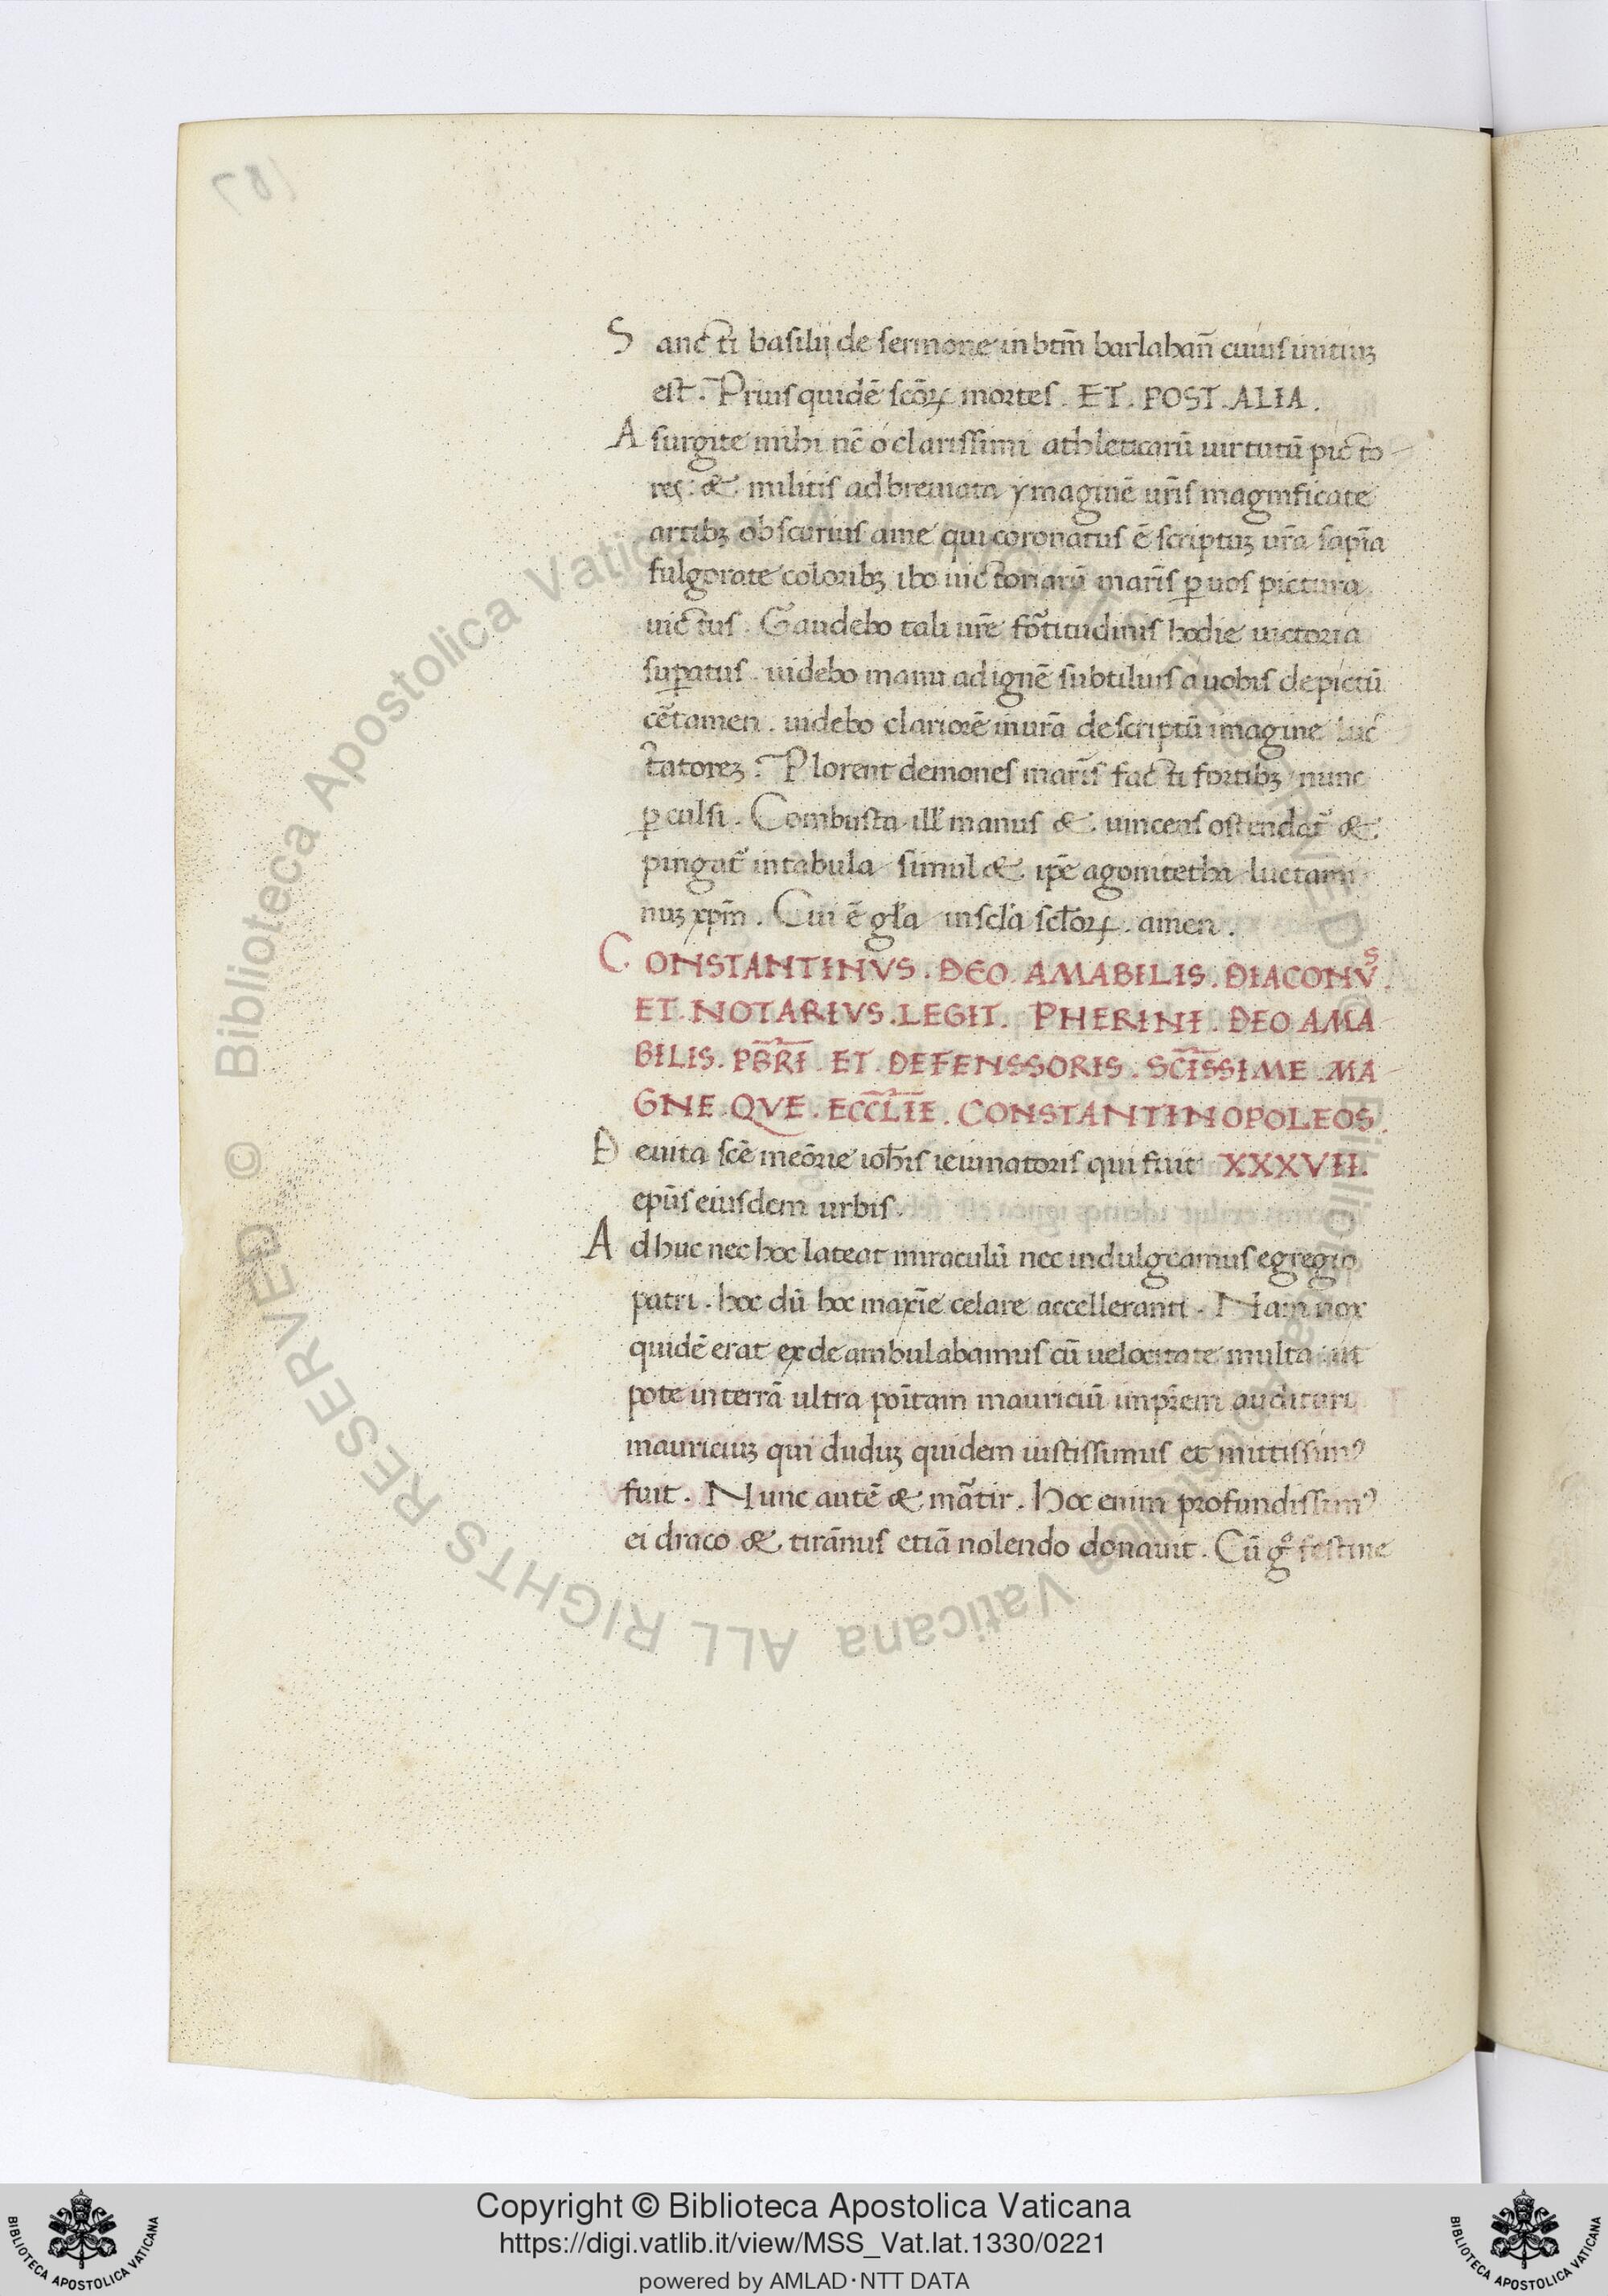 Sancti basilij de sermone in btm̄ barlaban̄ cuius initiuꝫ
est. Prius quidē scōꝝ mortes. ET. POST. ALIA.
Asurgite mihi nc̄ o clarissimi athleticarū uirtutū picto
res: & militis adbreuiata ymaginē ur̄is magnificate
artibꝫ obscurius a me qui coronatus ē scriptuꝫ ur̄a sapīa
fulgorate coloribꝫ ibo uictoriarū mar̄is ꝑ uos pictura
uictus. Gaudebo tali ur̄e fōtitudinis hodie uictoria
suꝑatus. uidebo manu ad ignē subtilius a uobis depictū
cētamen. uidebo clariorē in ur̄a descriptū imagine luc
tatoreꝫ. Plorent demones mar̄is facti fortibꝫ nunc
ꝑculsi. Combusta ill' manus & uincens ostendat᷑ &
pingat᷑ in tabula simul & ip̄e agonitetha luctami
nuꝫ xp̄m. Cui ē gl'a in scl'a scl'oꝝ. amen.
CONSTANTINVS. DEO AMABILIS. DIACONVS.
ET. NOTARIVS. LEGIT. PHERINI. DEO AMA
BILIS. PB̄RI ET. DEFENSSORIS. SC̄ISSIME. MA
GNE. QVE. ECCL̄IE. CONSTANTINOPOLEOS.
De uita scē meōrie ioh̄is ieiunatoris qui fuit XXXVII.
ep̄us eiusdem urbis.
Adhuc nec hoc lateat miraculū nec indulgeamus egregio
patri. hoc dū hoc maxīe celare accelleranti. Nam nox
quidē erat ex deambulabamus cū uelocitate multa ut
pote in terrā ultra poītam mauriciū imꝑ̄em audituri
mauriciuꝫ qui duduꝫ quidem iustissimus et mitissimꝰ
fuit. Nunc autē & mātir. Hoc enim profundissimꝰ
ei draco & tirānus etiā nolendo donauit. Cū gͦ festine
Copyright © Biblioteca Apostolica Vaticana
https://digi.vatlib.it/view/MSS_Vat.lat.1330/0221
powered by AMLAD·NTT DATA